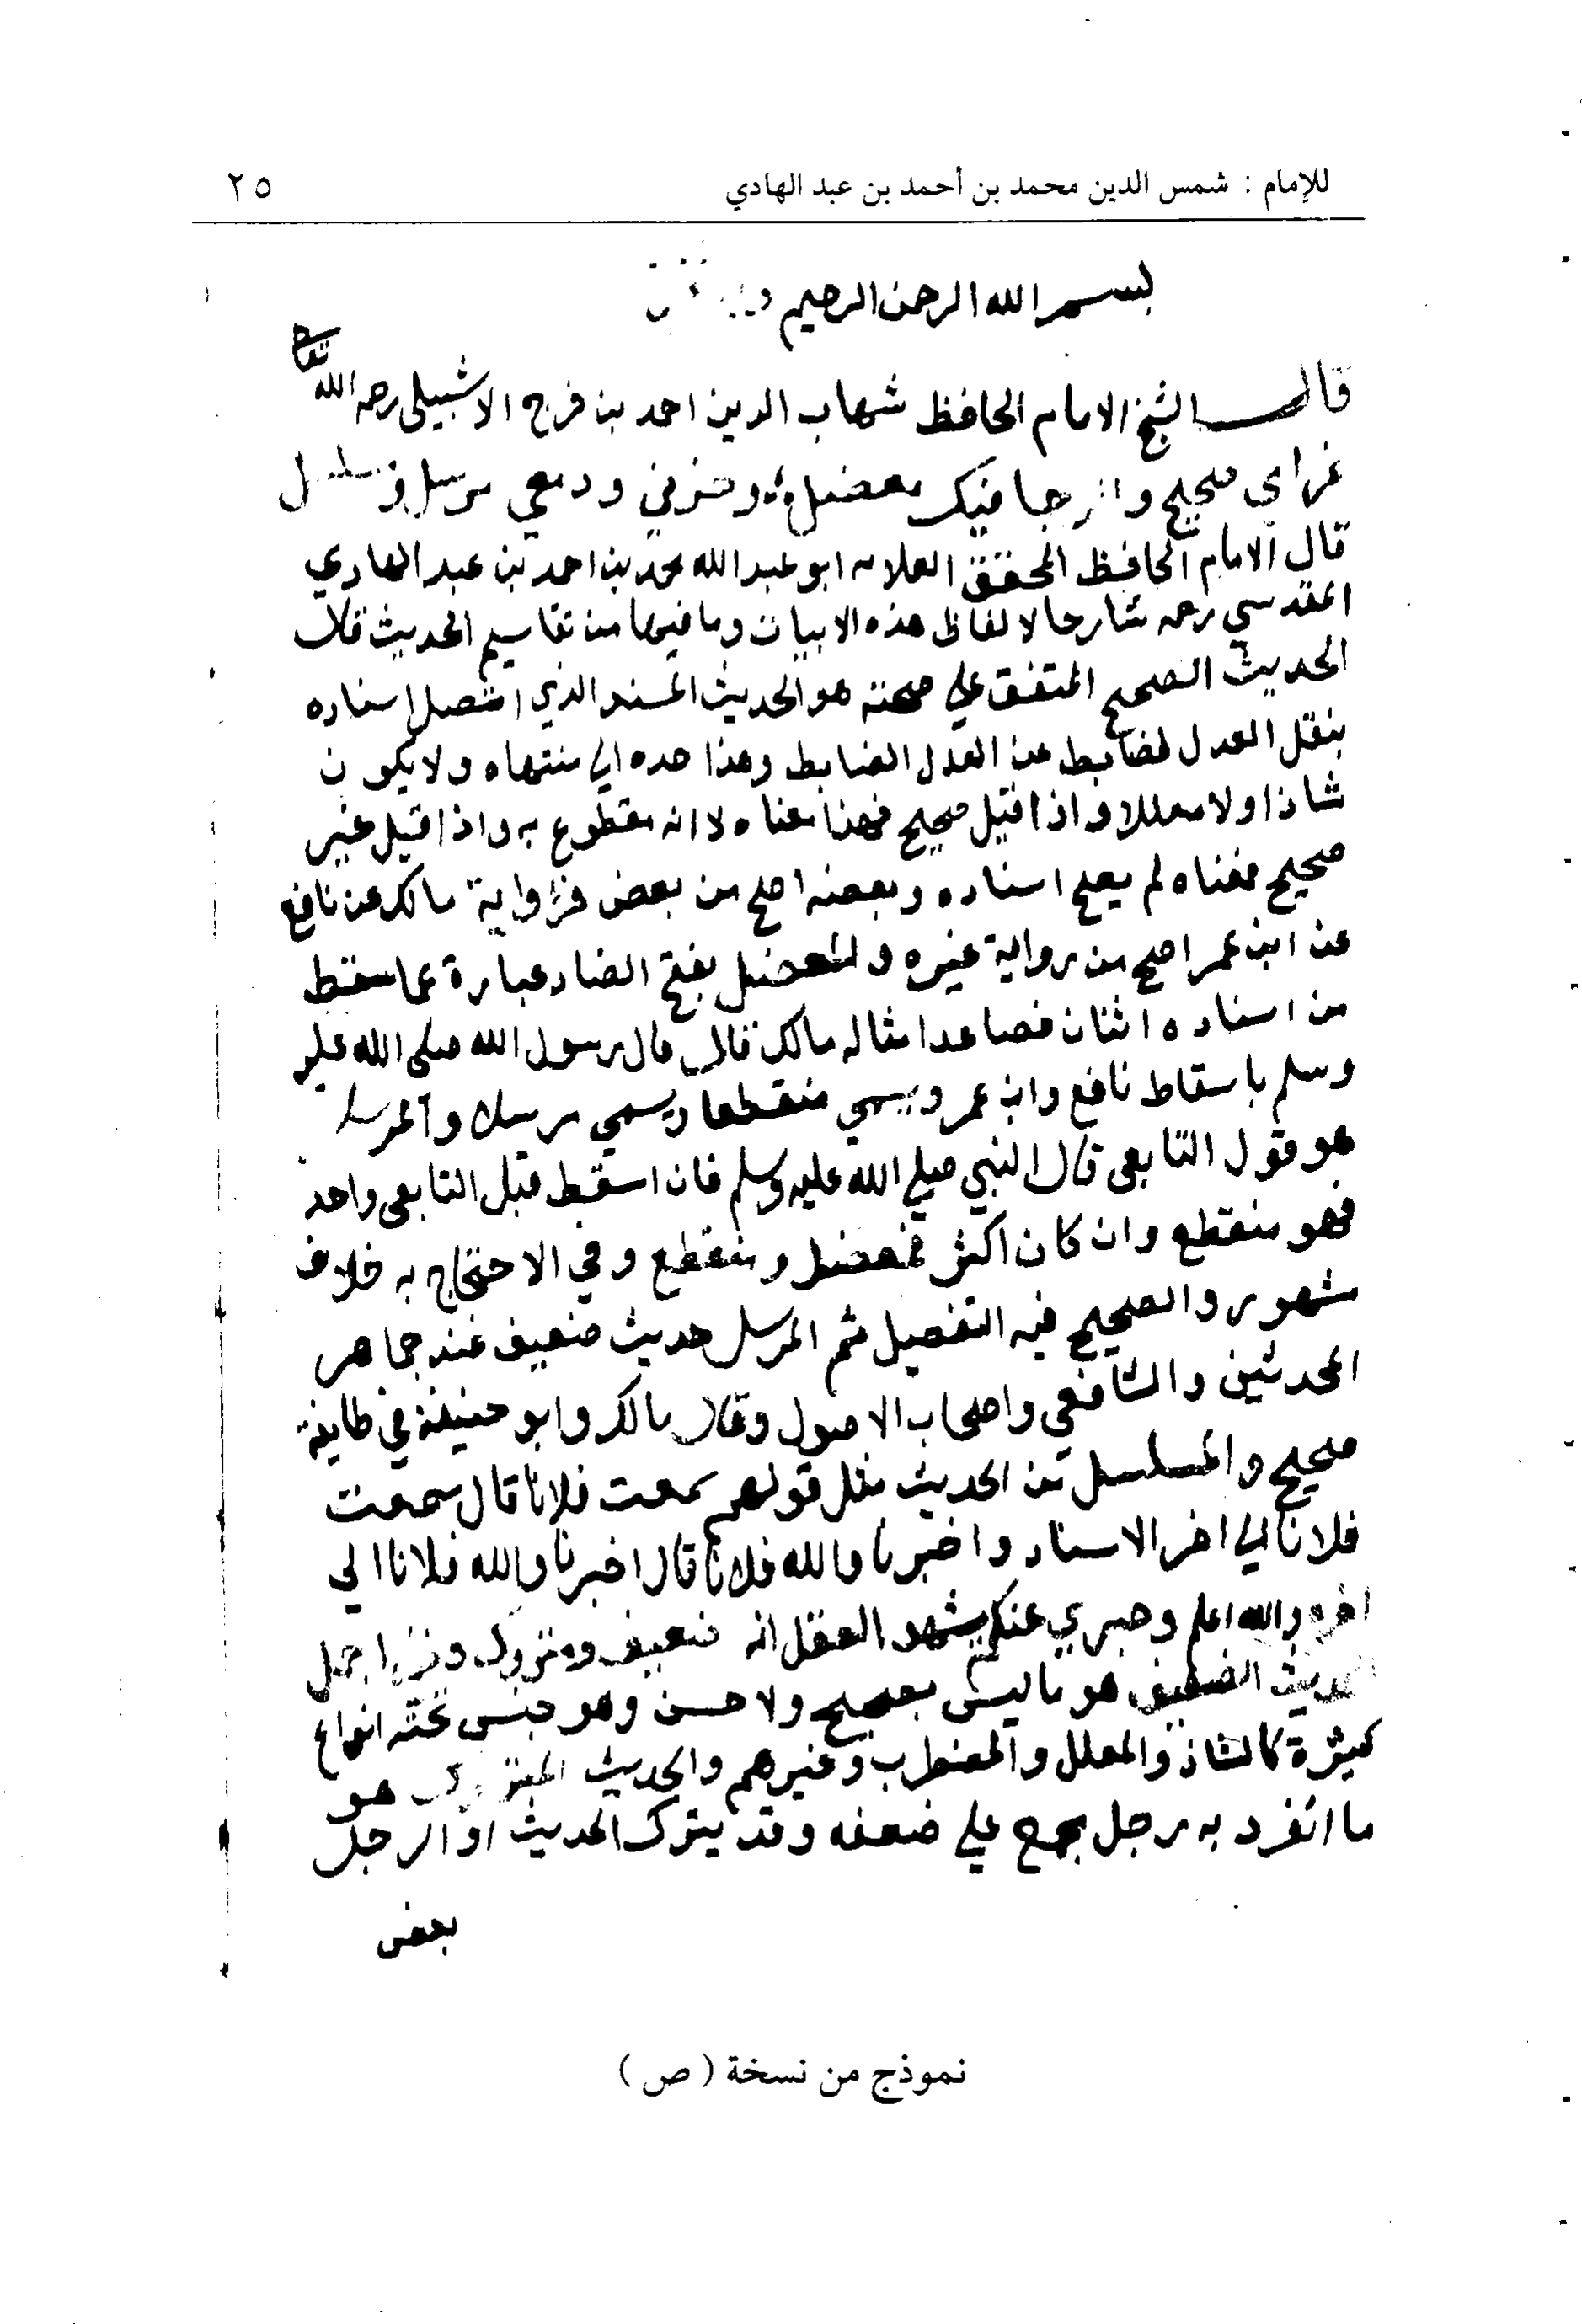 للإمام : شمس الدين محمد بن أحمد بن عبد الهادي ٢٥
بسم الله الرحمن الرحيم
قال الشيخ الامام الحافظ شهاب الدين احمد بن فرج الاشبيلي رحمه الله تعالى
غرامي صحيح والرجا فيك معضل وحزني ودمعي مرسل ومسلسل
قال الامام الحافظ المحقق العلامه ابو عبد الله محمد بن احمد بن عبد الهادي
المقدسي رحمه شارحا لالفاظ هذه الابيات وما فيها من تقاسيم الحديث قال
الحديث الصحيح المتفق علي صحته هو الحديث المسند الذي اتصل اسناده
بنقل العدل لضابط عن العدل الضابط وهذا حده الي منتهاه ولا يكون
شاذا ولا معللا واذا قيل صحيح فهذا معناه لا انه مقطوع به واذا قيل غير
صحيح فمعناه لم يصح اسناده وبعضه اصح من بعض فرواية مالك عن نافع
عن ابن عمر اصح من رواية غيره والمعضل بفتح الضاد عبارة عما سقط
من اسناده اثنان فصاعدا مثاله مالك قال قال رسول الله صلى الله عليه
وسلم باسقاط نافع وابن عمر ويسمي منقطعا ويسمي مرسلا والمرسل
هو قول التابعي قال النبي صلي الله عليه وسلم فان اسقط قبل التابعي واحد
فهو منقطع وان كان اكثر فمعضل ومنقطع وفي الاحتجاج به خلاف
مشهور والصحيح فيه التفصيل ثم المرسل حديث ضعيف عند جماهر
المحدثين والشافعي واصحاب الاصول وقال مالك وابو حنيفة في طايفة
صحيح والمسلسل من الحديث مثل قولهم سمعت فلانا قال سمعت
فلانا الي اخر الاسناد واخبرنا والله فلانا قال اخبرنا والله فلانا الي
اخره والله اعلم وصبري عنكم يشهد العقل انه ضعيف ومتروك وذلي اجمل
الحديث الضعيف هو ما ليس بصحيح ولا حسن وهو جنس تحته انواع
كثيرة كالشاذ والمعلل والمضطرب وغيرهم والحديث المتروك هو
ما انفرد به رجل مجمع علي ضعفه وقد يترك الحديث او الرجل
بعض
نموذج من نسخة ( ص )